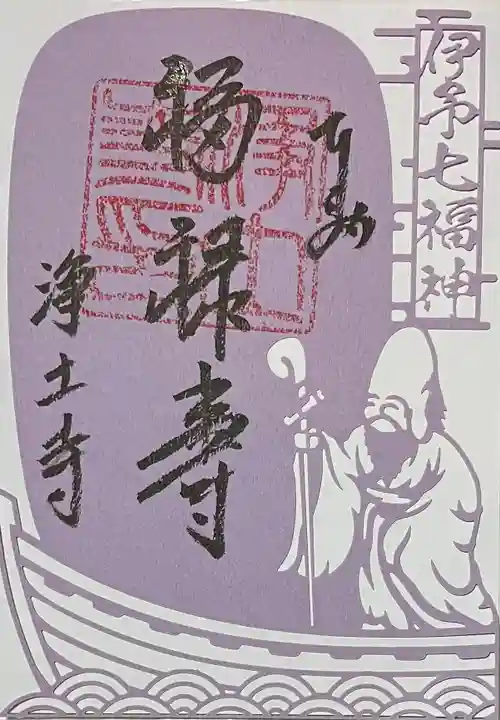 伊予七福神
奉拝
福禄寿
浄土寺